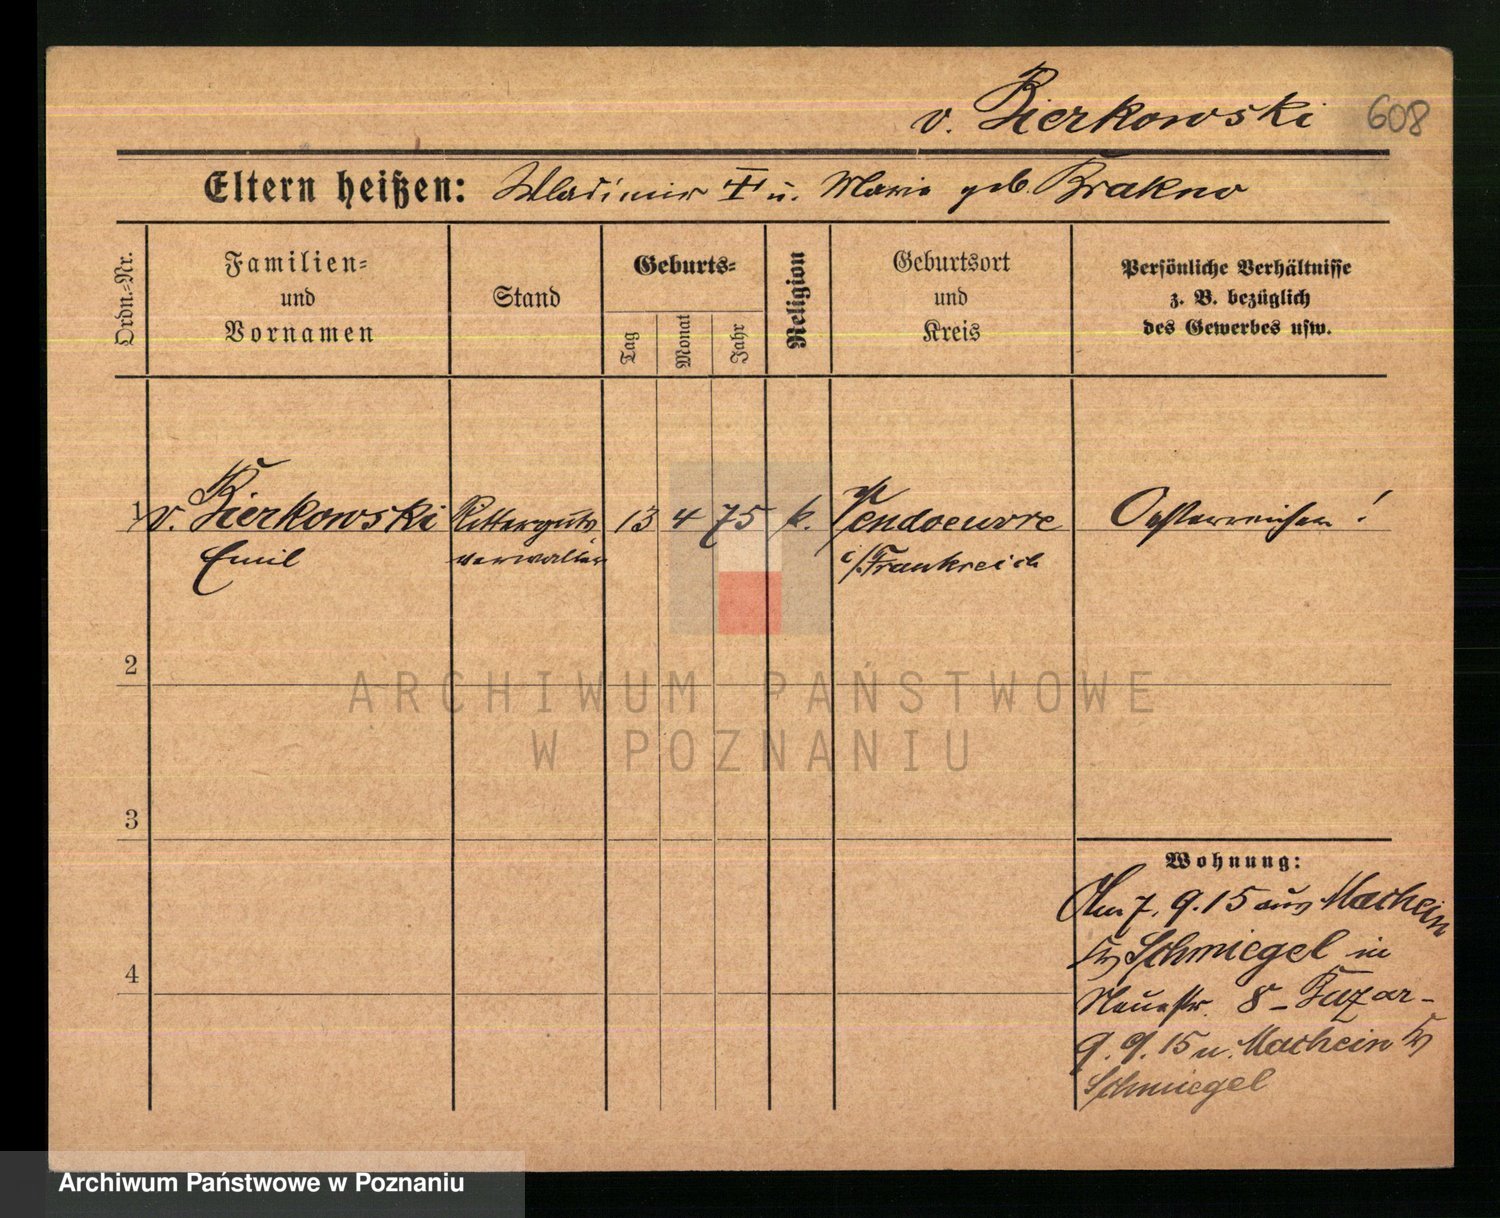 v. Bierkowski 608
Eltern heißen: Wladimir u. Maria geb. Brakno
Ordn.-Nr.
Familien-
und
Vornamen
Stand
Geburts-
Tag
Monat
Jahr
Religion
Geburtsort
und
Kreis
Persönliche Verhältnisse
z. B. bezüglich
des Gewerbes usw.
1 v. Bierkowski Ritterguts 13 4 75 k. Vendoeuvre Oesterreicher!
Emil verwalter i/Frankreich
2
3
4
Wohnung:
Am 7. 9. 15 aus Machcin
Schmiegel in
Neuestr. 8 -
9. 9. 15 n. Machcin
Schmiegel
ARCHIWUM PAŃSTWOWE
W POZNANIU
Archiwum Państwowe w Poznaniu